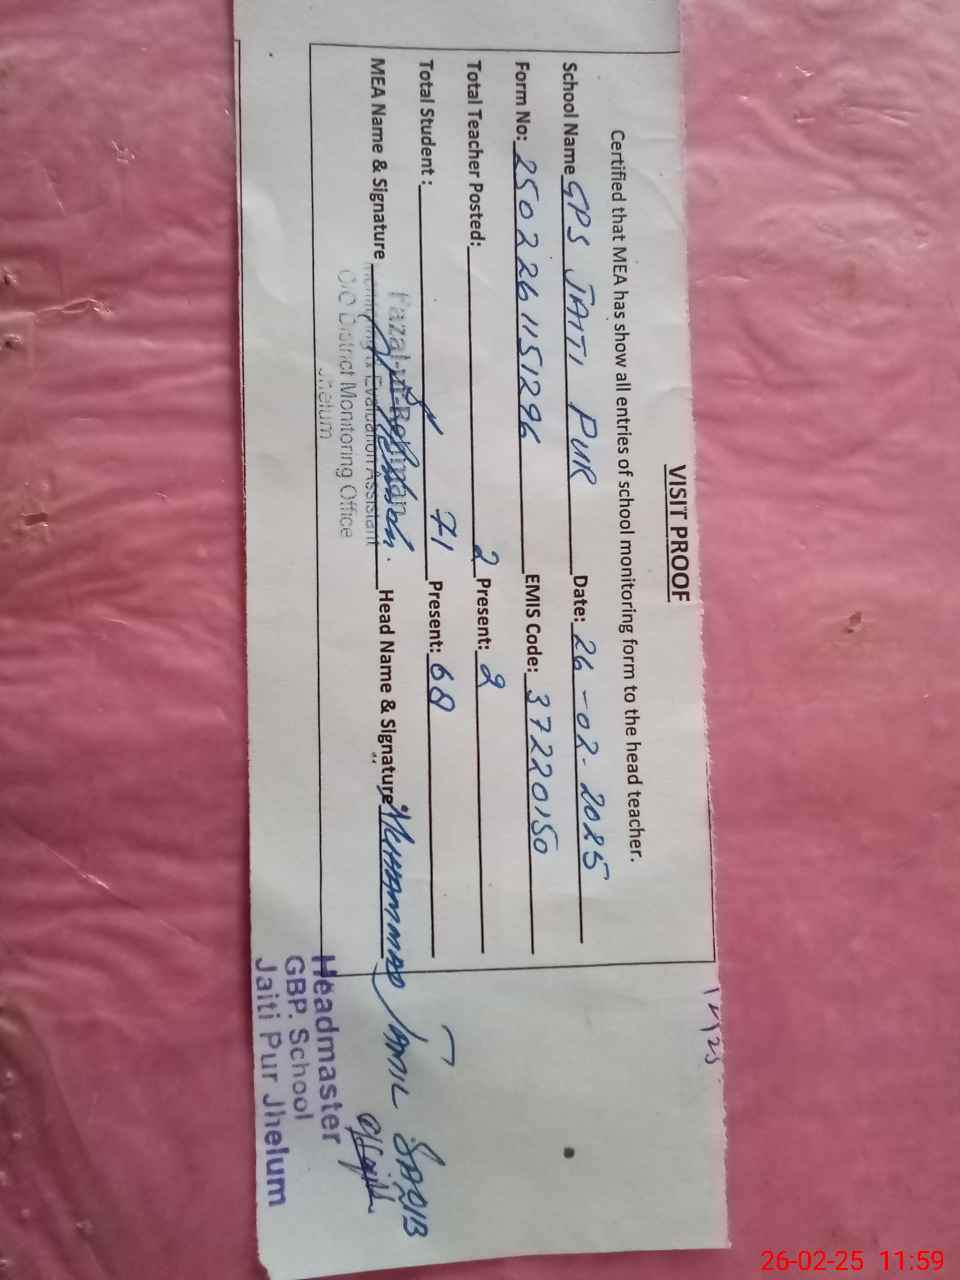 VISIT PROOF
Certified that MEA has show all entries of school monitoring form to the head teacher.
School Name GPS JAITI PUR Date: 26-02-2025
Form No: 2502261151296 EMIS Code: 37220150
Total Teacher Posted: 2 Present: 2
Total Student: 71 Present: 68
MEA Name & Signature Head Name & Signature MUHAMMAD JAMIL
Fazal-ur-Rehman
Monitoring & Evaluation Assistant
O/O District Monitoring Office
Jhelum
Headmaster
GBP. School
Jaiti Pur Jhelum
26-02-25 11:59